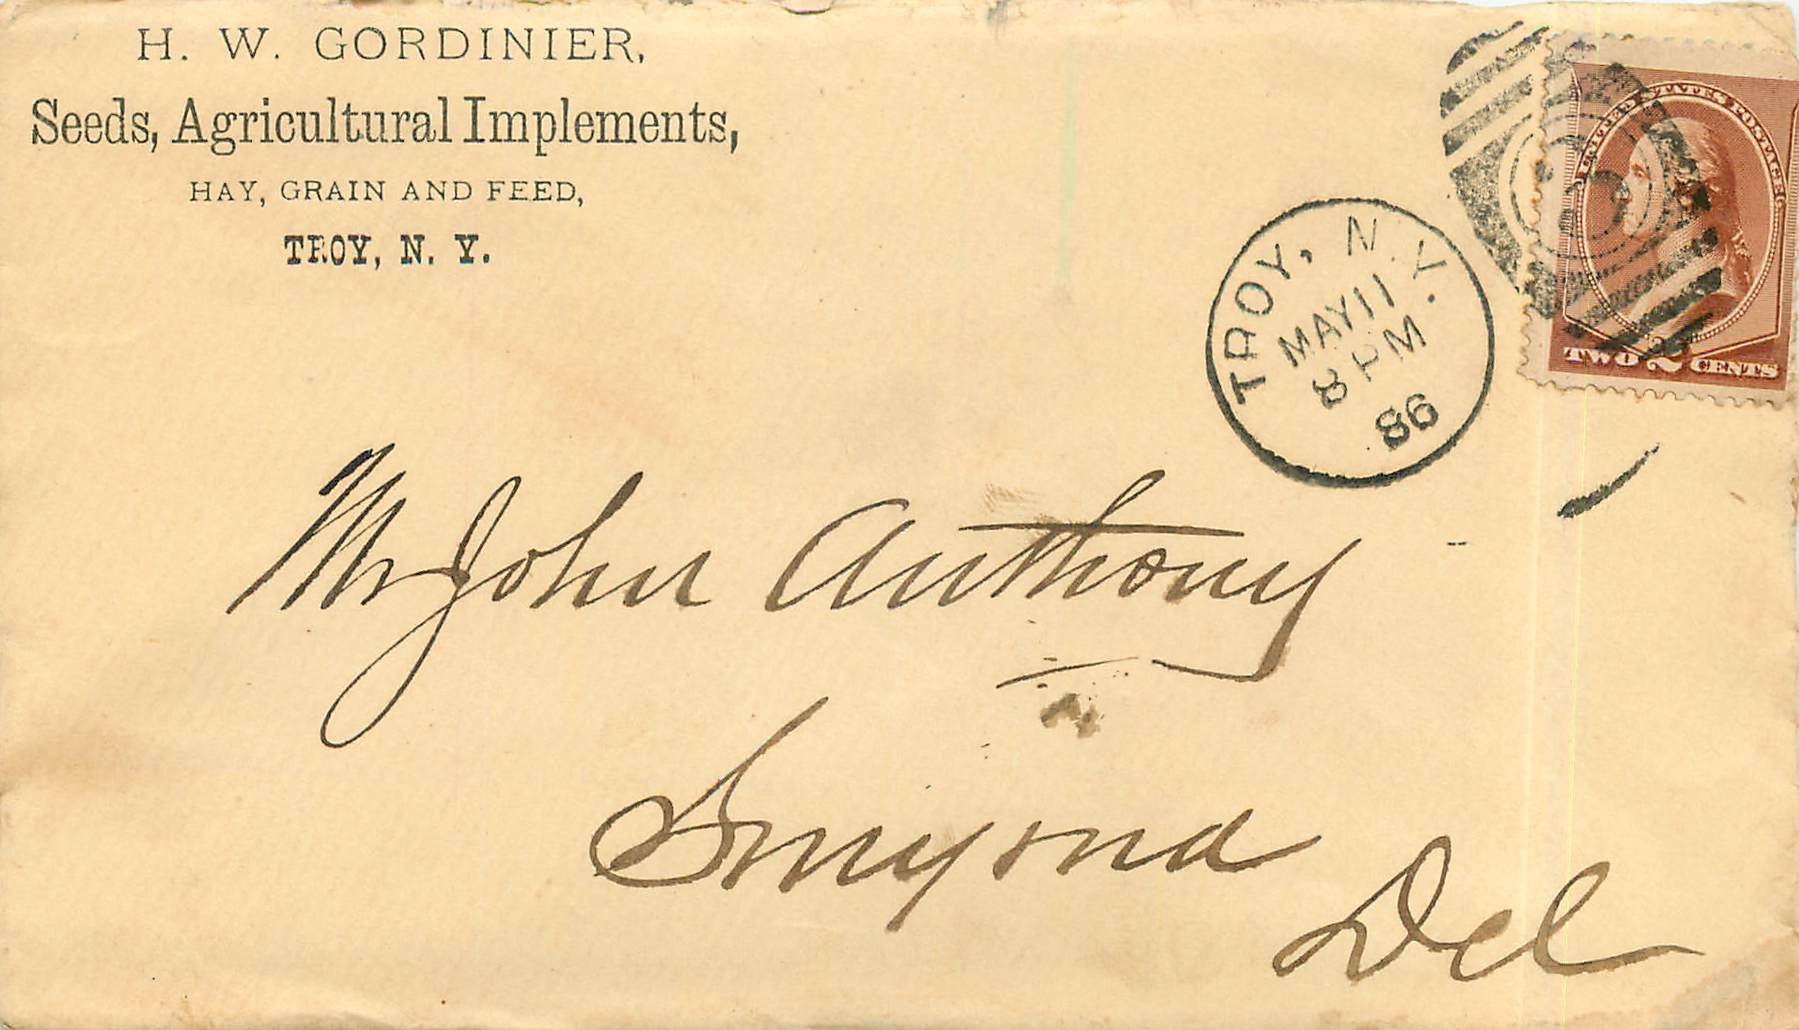 H. W. GORDINIER,
Seeds, Agricultural Implements,
HAY, GRAIN AND FEED,
TROY, N. Y.
UNITED STATES POSTAGE
TWO 2 CENTS
TROY, N.Y.
MAY 11
8 PM
86
Mr John Anthony
Smyrna
Del